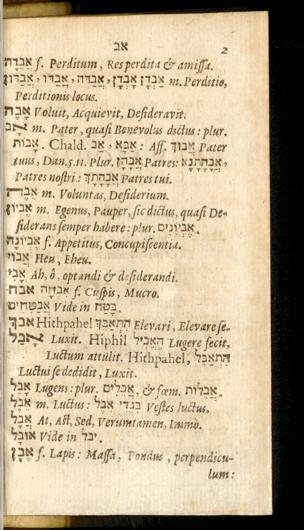 אב 2
אֲבֵדָה f. Perditum, Res perdita & amissa.
אַבְדָן אָבְדָן, אֲבַדֹּה, אֲבַדּוֹ, אֲבַדּוֹן m. Perditio,
Perditionis locus.
אָבָה Voluit, Acquievit, Desideravit.
אָב m. Pater, quasi Benevolus dictus: plur.
אָבוֹת. Chald. אַב, אַבָּא: Aff. אֲבוּךְ Pater
tuus, Dan. 5.11. Plur. אֲבָהָן Patres: אֲבָהָתָנָא,
Patres nostri: אֲבָהָתָךְ Patres tui.
אבה m. Voluntas, Desiderium.
אֶבְיוֹן m. Egenus, Pauper, sic dictus, quasi De-
siderans semper habere: plur. אֶבְיוֹנִים.
אֲבִיּוֹנָה f. Appetitus, Concupiscentia.
אֲבוֹי Heu, Eheu.
אָבִי Ah, ô, optandi & desiderandi.
אבח אִבְחָה f. Cuspis, Mucro.
אֲבַטִּחִים Vide in בָּטַח.
אבך Hithpahel הִתְאַבֵּךְ Elevari, Elevare se.
אָבַל Luxit. Hiphil הֶאֱבִיל Lugere fecit,
Luctum attulit. Hithpahel, הִתְאַבֵּל
Luctui se dedidit, Luxit.
אָבֵל Lugens: plur. אֲבֵלִים, & fœm. אֲבֵלוֹת.
אֵבֶל m. Luctus: בִּגְדֵי אֵבֶל Vestes luctus.
אֲבָל At, Ast, Sed, Verumtamen, Immò.
אוּבָל Vide in יבל.
אֶבֶן f. Lapis: Massa, Pondus, perpendicu-
lum: